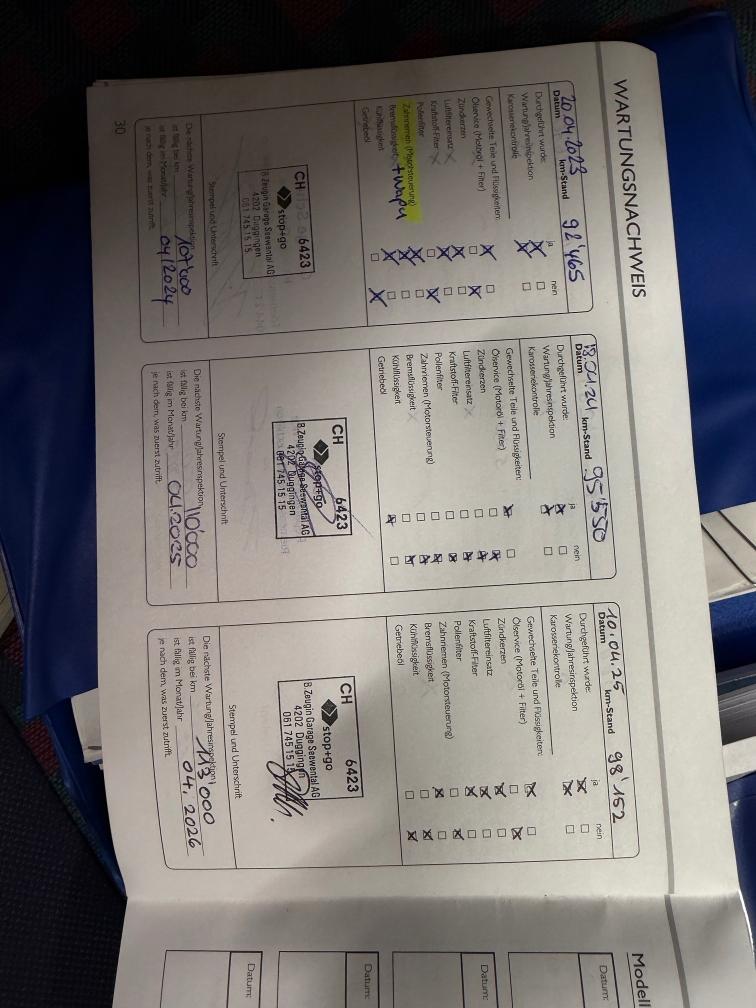 WARTUNGSNACHWEIS
20.04.2023 92'465
Datum km-Stand
ja nein
Durchgeführt wurde:
Wartung/Jahresinspektion
Karosseriekontrolle
Gewechselte Teile und Flüssigkeiten:
Ölservice (Motoröl + Filter)
Zündkerzen
Luftfiltereinsatz
Kraftstoff-Filter
Pollenfilter
Zahnriemen (Motorsteuerung)
Bremsflüssigkeit + Wapu
Kühlflüssigkeit
Getriebeöl
CH 6423
stop+go
B.Zeugin Garage Seewental AG
4202 Duggingen
061 745 15 15
Stempel und Unterschrift
Die nächste Wartung/Jahresinspektion
ist fällig bei km 107'000
ist fällig im Monat/Jahr 04/2024
je nach dem, was zuerst zutrifft.
30
18.04.24 95'550
Datum km-Stand
ja nein
Durchgeführt wurde:
Wartung/Jahresinspektion
Karosseriekontrolle
Gewechselte Teile und Flüssigkeiten:
Ölservice (Motoröl + Filter)
Zündkerzen
Luftfiltereinsatz
Kraftstoff-Filter
Pollenfilter
Zahnriemen (Motorsteuerung)
Bremsflüssigkeit
Kühlflüssigkeit
Getriebeöl
CH 6423
stop+go
B.Zeugin Garage Seewental AG
4202 Duggingen
061 745 15 15
Stempel und Unterschrift
Die nächste Wartung/Jahresinspektion
ist fällig bei km 110'000
ist fällig im Monat/Jahr 04.2025
je nach dem, was zuerst zutrifft.
10.04.25 98'152
Datum km-Stand
ja nein
Durchgeführt wurde:
Wartung/Jahresinspektion
Karosseriekontrolle
Gewechselte Teile und Flüssigkeiten:
Ölservice (Motoröl + Filter)
Zündkerzen
Luftfiltereinsatz
Kraftstoff-Filter
Pollenfilter
Zahnriemen (Motorsteuerung)
Bremsflüssigkeit
Kühlflüssigkeit
Getriebeöl
CH 6423
stop+go
B.Zeugin Garage Seewental AG
4202 Duggingen
061 745 15 15
Stempel und Unterschrift
Die nächste Wartung/Jahresinspektion
ist fällig bei km 113'000
ist fällig im Monat/Jahr 04.2026
je nach dem, was zuerst zutrifft.
Modell
Datum:
Datum:
Datum:
Datum: